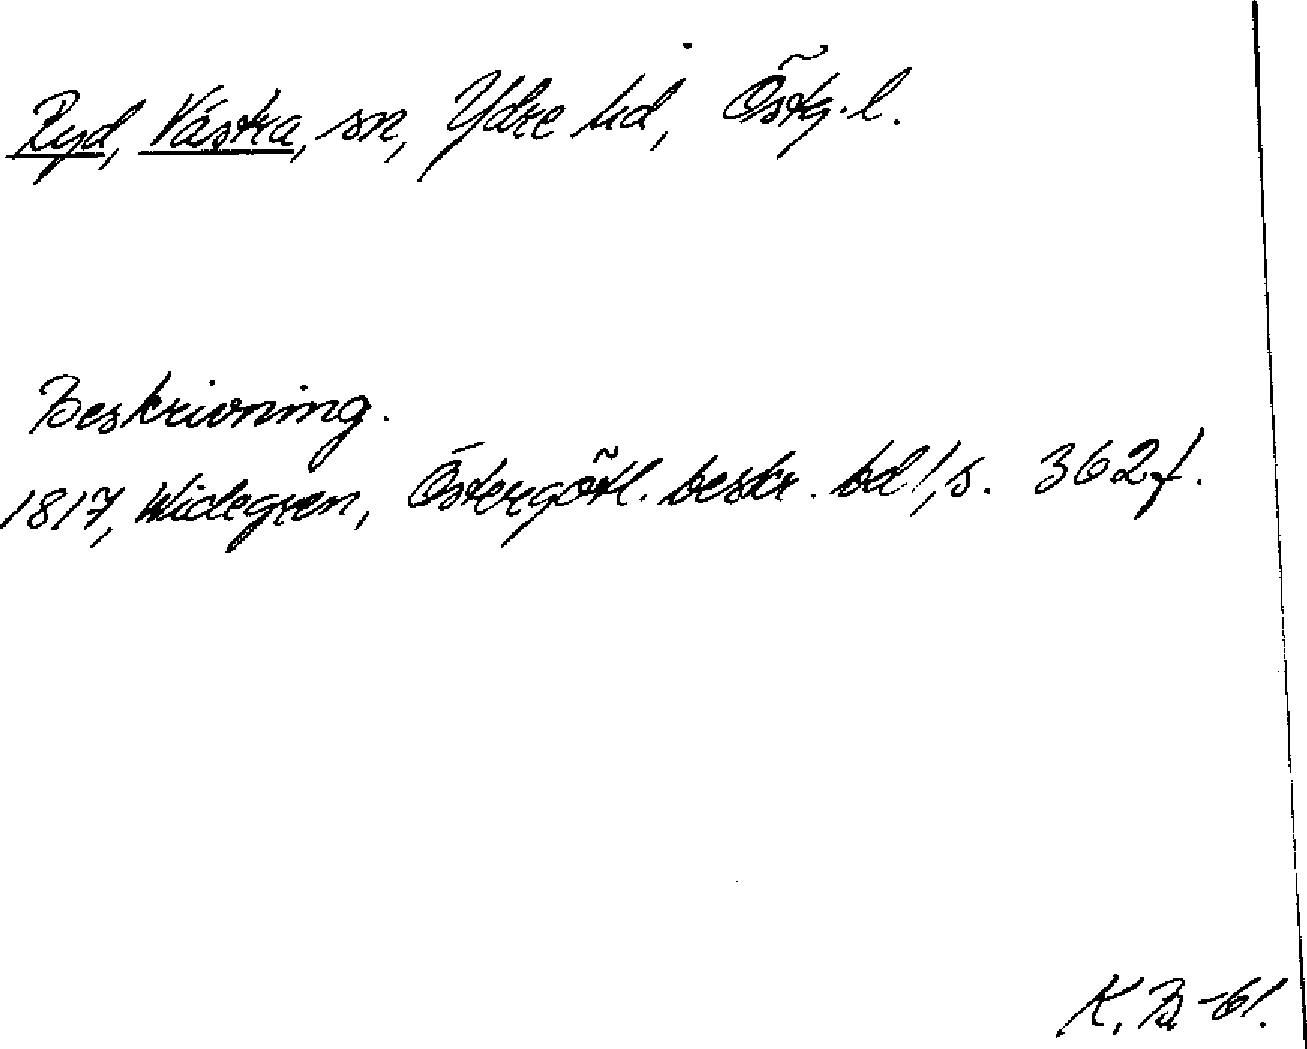 Ryd, Västra, sn, Ydre hd, Östg. l.
Beskrivning.
1817, Widegren, Östergötl. beskr. bd 1, s. 362 f.
K. B -61.